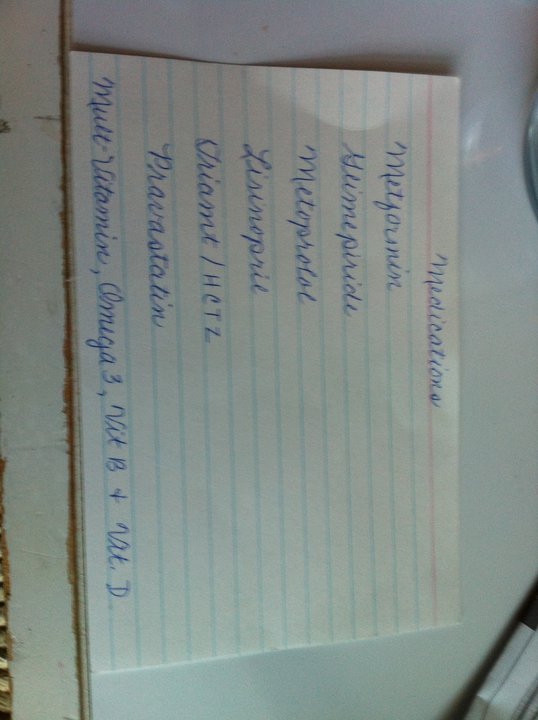 Medications
Metformin
Glimepiride
Metoprolol
Lisinopril
Triamt/HCTZ
Pravastatin
Mult-Vitamin, Omega 3, Vit B + Vit. D